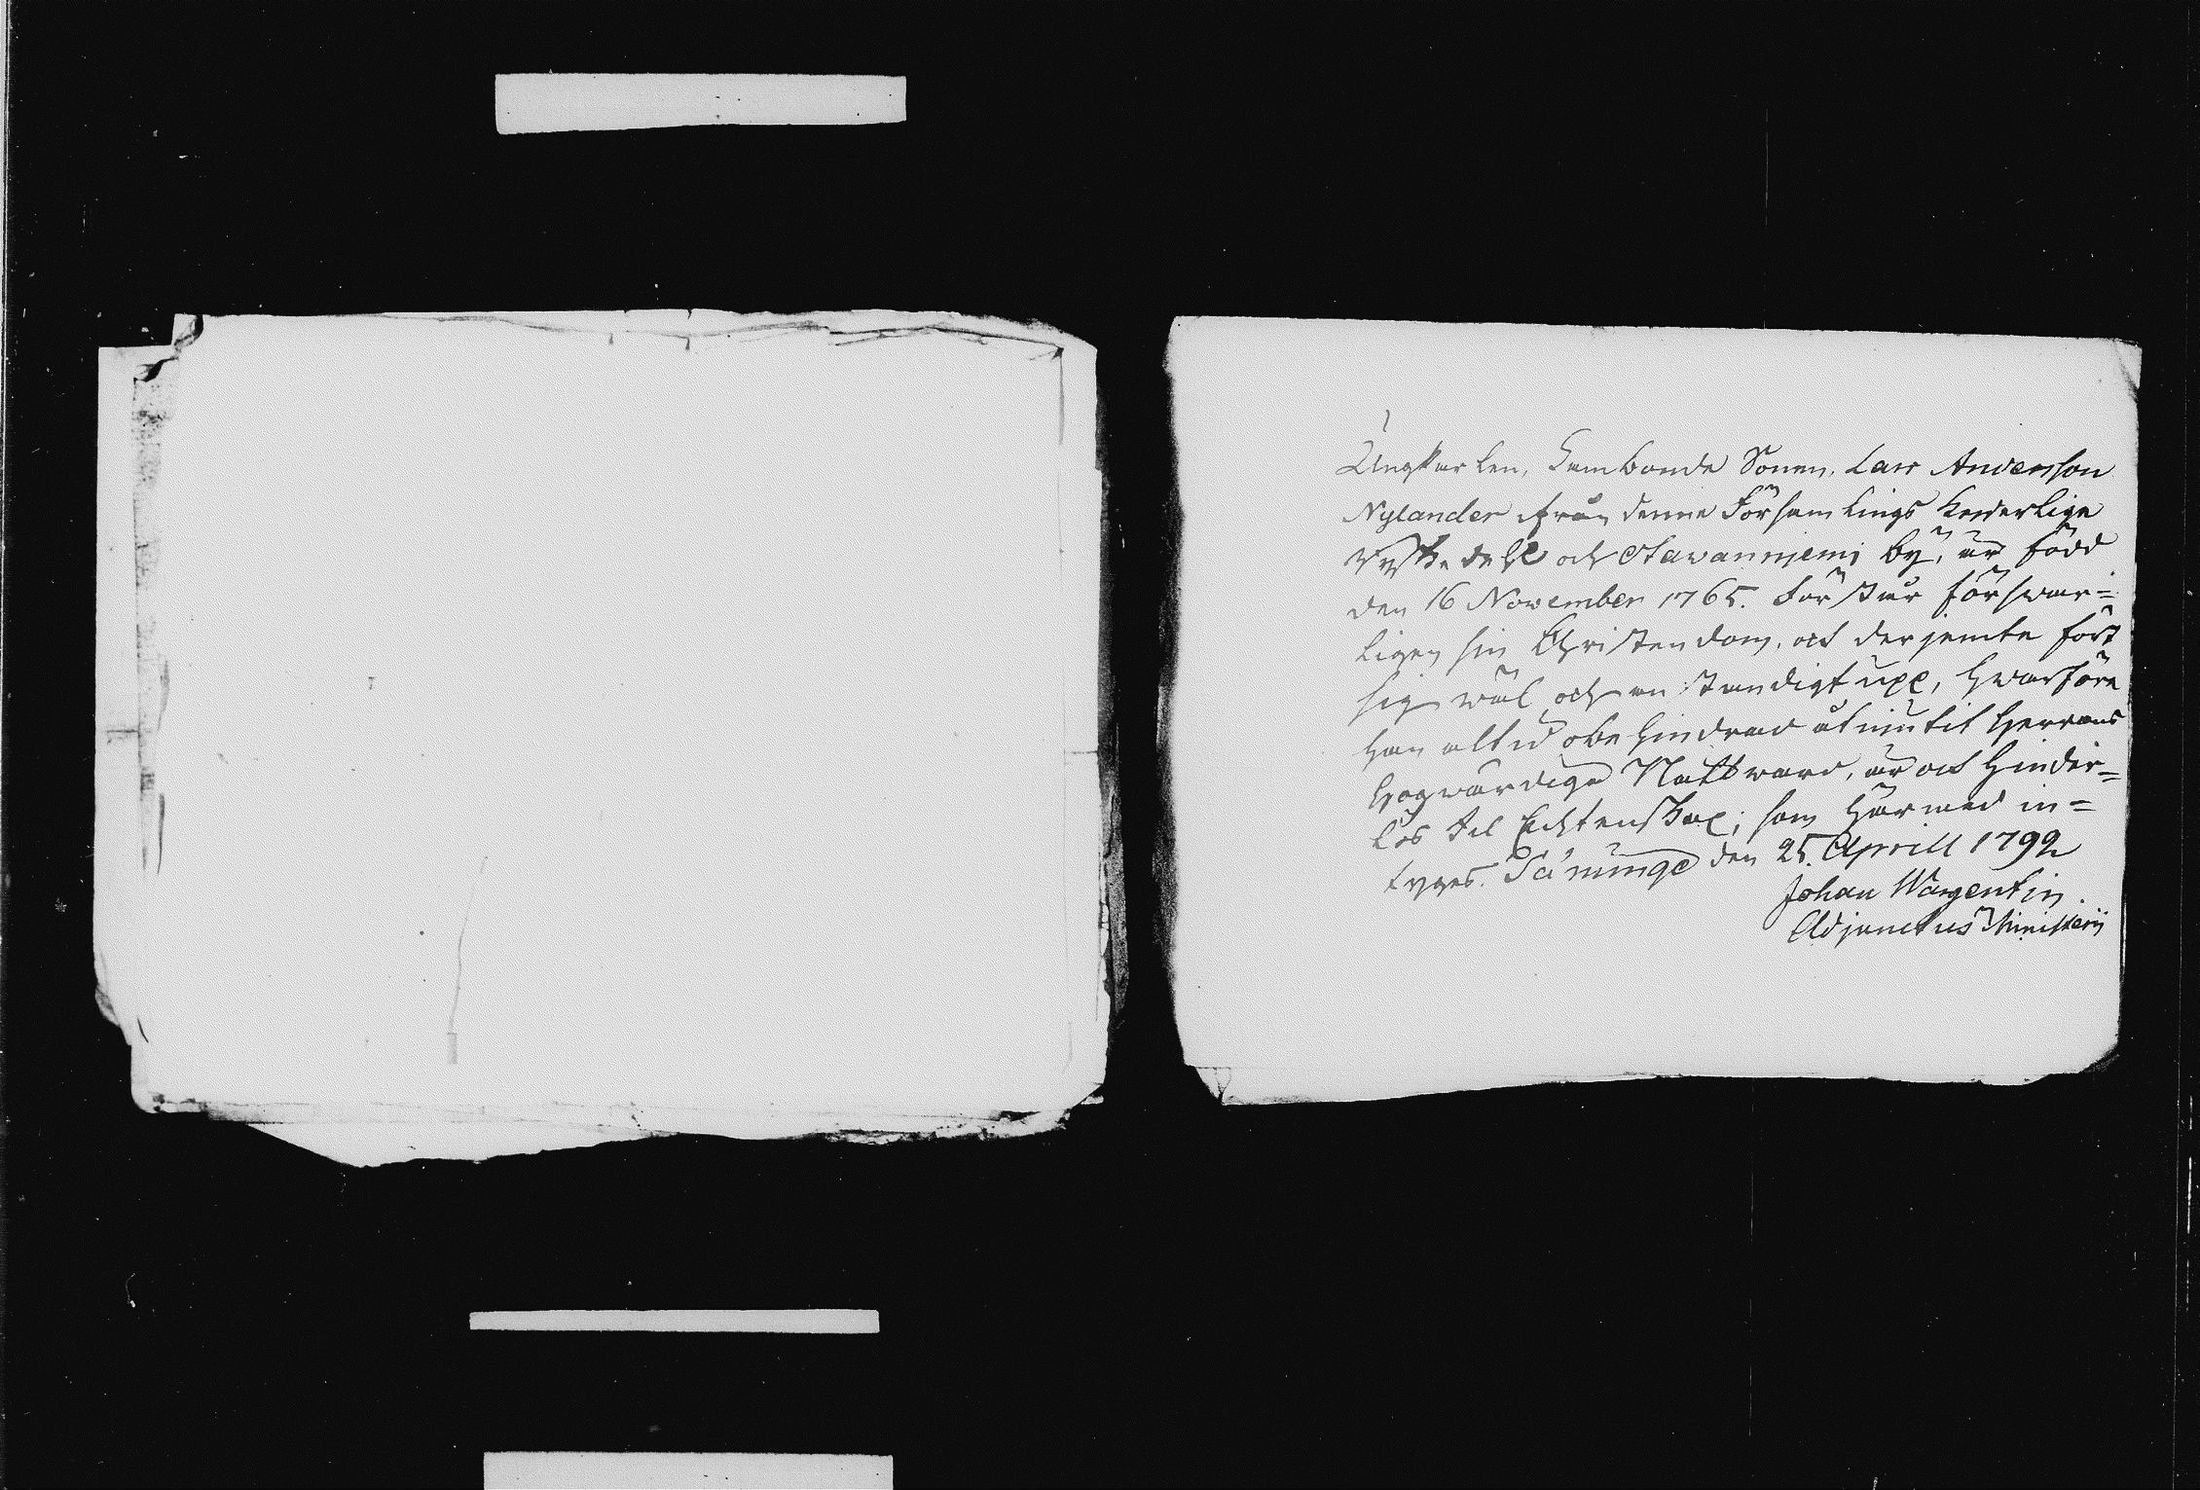 Ungkarlen, Lambonde Sonen, Lars Andersson
Nylander ifrån denne Församlings Lederlige
och Stavanniemi by, är född
den 16 November 1765. Förstår förswar=
ligen sin Christendom, och derjemte fört
sig wäl och anständigt upp, hwarföre
han altid obehindrad åtniutit Herrans
Högwärdiga Nattward, är och hinder=
lös til Echtenskap; som härmed in=
tygas. Säninge den 25. Aprill 1792
Johan Wargentin.
Adjunctus Ministerii